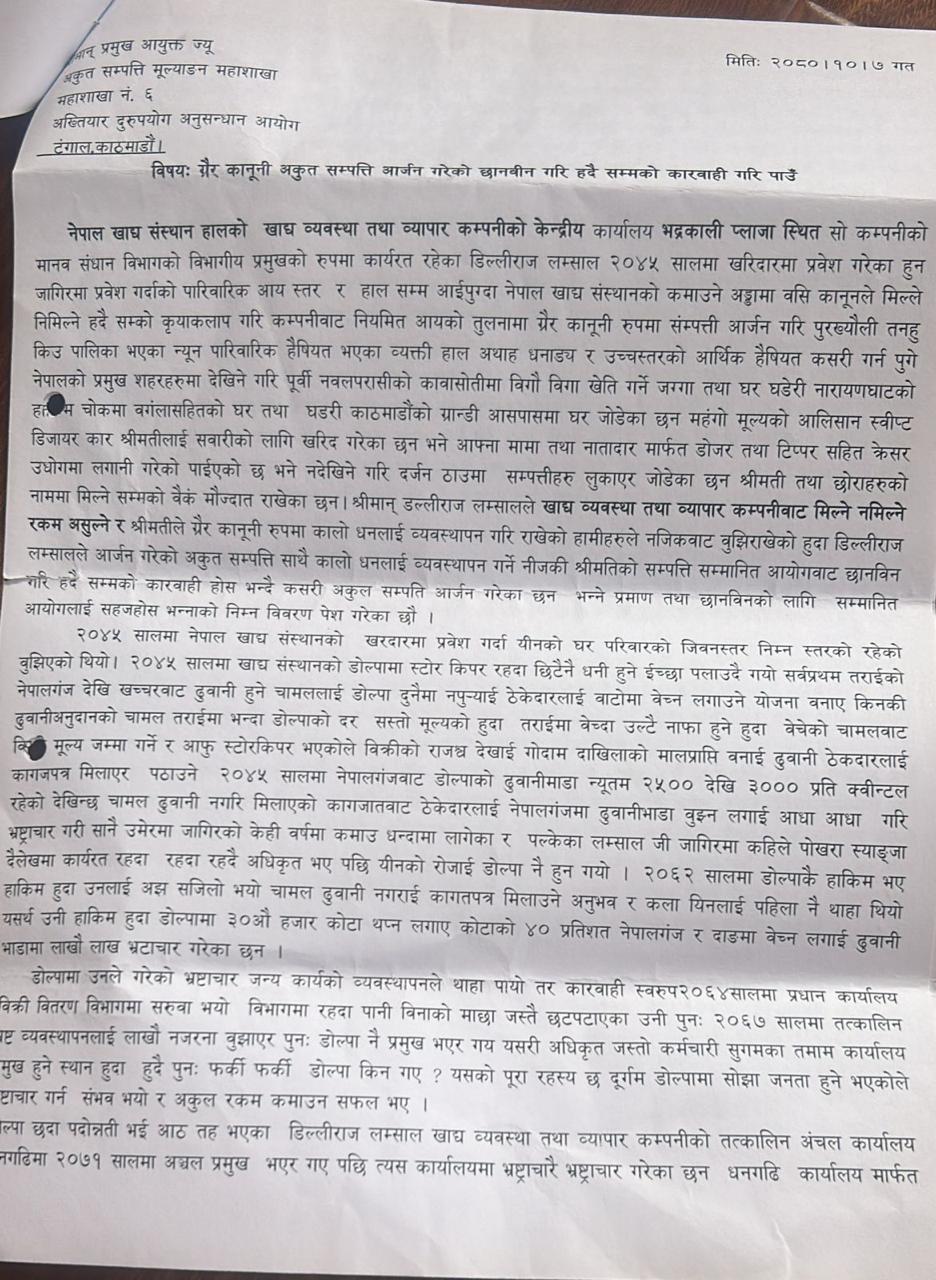 मान् प्रमुख आयुक्त ज्यू
मितिः २०८०।१०।७ गत
अकुत सम्पत्ति मूल्याडन महाशाखा
महाशाखा नं. ६
अख्तियार दुरुपयोग अनुसन्धान आयोग
टंगाल,काठमाडौं।
विषयः ग्रैर कानूनी अकुत सम्पत्ति आर्जन गरेको छानवीन गरि हदै सम्मको कारवाही गरि पाउँ
नेपाल खाद्य संस्थान हालको खाद्य व्यवस्था तथा व्यापार कम्पनीको केन्द्रीय कार्यालय भद्रकाली प्लाजा स्थित सो कम्पनीको
मानव संधान विभागको विभागीय प्रमुखको रुपमा कार्यरत रहेका डिल्लीराज लम्साल २०४५ सालमा खरिदारमा प्रवेश गरेका हुन
जागिरमा प्रवेश गर्दाको पारिवारिक आय स्तर र हाल सम्म आईपुग्दा नेपाल खाद्य संस्थानको कमाउने अड्डामा वसि कानूनले मिल्ने
निमिल्ने हदै सम्को कृयाकलाप गरि कम्पनीवाट नियमित आयको तुलनामा ग्रैर कानूनी रुपमा संम्पत्ती आर्जन गरि पुरख्यौली तनहु
किउ पालिका भएका न्यून पारिवारिक हैषियत भएका व्यक्ती हाल अथाह धनाड्य र उच्चस्तरको आर्थिक हैषियत कसरी गर्न पुगे
नेपालको प्रमुख शहरहरुमा देखिने गरि पूर्वी नवलपरासीको कावासोतीमा विगौ विगा खेति गर्ने जग्गा तथा घर घडेरी नारायणघाटको
चोकमा वगंलासहितको घर तथा घडरी काठमाडौंको ग्रान्डी आसपासमा घर जोडेका छन महंगो मूल्यको आलिसान स्वीप्ट
डिजायर कार श्रीमतीलाई सवारीको लागि खरिद गरेका छन भने आफ्ना मामा तथा नातादार मार्फत डोजर तथा टिप्पर सहित क्रेसर
उधोगमा लगानी गरेको पाईएको छ भने नदेखिने गरि दर्जन ठाउमा सम्पत्तीहरु लुकाएर जोडेका छन श्रीमती तथा छोराहरुको
नाममा मिल्ने सम्मको वैकं मौज्दात राखेका छन। श्रीमान् डल्लीराज लम्सालले खाद्य व्यवस्था तथा व्यापार कम्पनीवाट मिल्ने नमिल्ने
रकम असुल्ने र श्रीमतीले ग्रैर कानूनी रुपमा कालो धनलाई व्यवस्थापन गरि राखेको हामीहरुले नजिकवाट वुझिराखेको हुदा डिल्लीराज
लम्सालले आर्जन गरेको अकुत सम्पति साथै कालो धनलाई व्यवस्थापन गर्ने नीजकी श्रीमतिको सम्पत्ति सम्मानित आयोगवाट छानविन
गरि हदै सम्मको कारवाही होस भन्दै कसरी अकुल सम्पति आर्जन गरेका छन भन्ने प्रमाण तथा छानविनको लागि सम्मानित
आयोगलाई सहजहोस भन्नाको निम्न विवरण पेश गरेका छौ ।
२०४५ सालमा नेपाल खाद्य संस्थानको खरदारमा प्रवेश गर्दा यीनको घर परिवारको जिवनस्तर निम्न स्तरको रहेको
वुझिएको थियो। २०४५ सालमा खाद्य संस्थानको डोल्पामा स्टोर किपर रहदा छिटैनै धनी हुने ईच्छा पलाउदै गयो सर्वप्रथम तराईको
नेपालगंज देखि खच्चरवाट ढुवानी हुने चामललाई डोल्पा दुनैमा नपुऱ्याई ठेकेदारलाई वाटोमा वेच्न लगाउने योजना वनाए किनकी
ढुवानीअनुदानको चामल तराईमा भन्दा डोल्पाको दर सस्तो मूल्यको हुदा तराईमा वेच्दा उल्टै नाफा हुने हुदा वेचेको चामलवाट
मूल्य जम्मा गर्ने र आफु स्टोरकिपर भएकोले विक्रीको राजश्व देखाई गोदाम दाखिलाको मालप्राप्ति वनाई ढुवानी ठेकदारलाई
कागजपत्र मिलाएर पठाउने २०४५ सालमा नेपालगंजवाट डोल्पाको ढुवानीमाडा न्यूतम २५०० देखि ३००० प्रति क्वीन्टल
रहेको देखिन्छ चामल ढुवानी नगरि मिलाएको कागजातवाट ठेकेदारलाई नेपालगंजमा ढुवानीभाडा वुझ्न लगाई आधा आधा गरि
भ्रष्ट्राचार गरी सानै उमेरमा जागिरको केही वर्षमा कमाउ धन्दामा लागेका र पल्केका लम्साल जी जागिरमा कहिले पोखरा स्याङ्जा
दैलेखमा कार्यरत रहदा रहदा रहदै अधिकृत भए पछि यीनको रोजाई डोल्पा नै हुन गयो । २०६२ सालमा डोल्पाकै हाकिम भए
हाकिम हुदा उनलाई अझ सजिलो भयो चामल ढुवानी नगराई कागतपत्र मिलाउने अनुभव र कला यिनलाई पहिला नै थाहा थियो
यसर्थ उनी हाकिम हुदा डोल्पामा ३०औ हजार कोटा थप्न लगाए कोटाको ४० प्रतिशत नेपालगंज र दाङमा वेच्न लगाई ढुवानी
भाडामा लाखौ लाख भ्रटाचार गरेका छन ।
डोल्पामा उनले गरेको भ्रष्टाचार जन्य कार्यको व्यवस्थापनले थाहा पायो तर कारवाही स्वरुप२०६४सालमा प्रधान कार्यालय
विक्री वितरण विभागमा सरुवा भयो विभागमा रहदा पानी विनाको माछा जस्तै छटपटाएका उनी पुनः २०६७ सालमा तत्कालिन
ष्ट व्यवस्थापनलाई लाखौ नजरना वुझाएर पुनः डोल्पा नै प्रमुख भएर गय यसरी अधिकृत जस्तो कर्मचारी सुगमका तमाम कार्यालय
मुख हुने स्थान हुदा हुदै पुनः फर्की फर्की डोल्पा किन गए ? यसको पूरा रहस्य छ दूर्गम डोल्पामा सोझा जनता हुने भएकोले
ष्टाचार गर्न संभव भयो र अकुल रकम कमाउन सफल भए ।
ल्पा छदा पदोन्नती भई आठ तह भएका डिल्लीराज लम्साल खाद्य व्यवस्था तथा व्यापार कम्पनीको तत्कालिन अंचल कार्यालय
नगढिमा २०७१ सालमा अञ्चल प्रमुख भएर गए पछि त्यस कार्यालयमा भ्रष्ट्राचारै भ्रष्ट्राचार गरेका छन धनगढि कार्यालय मार्फत